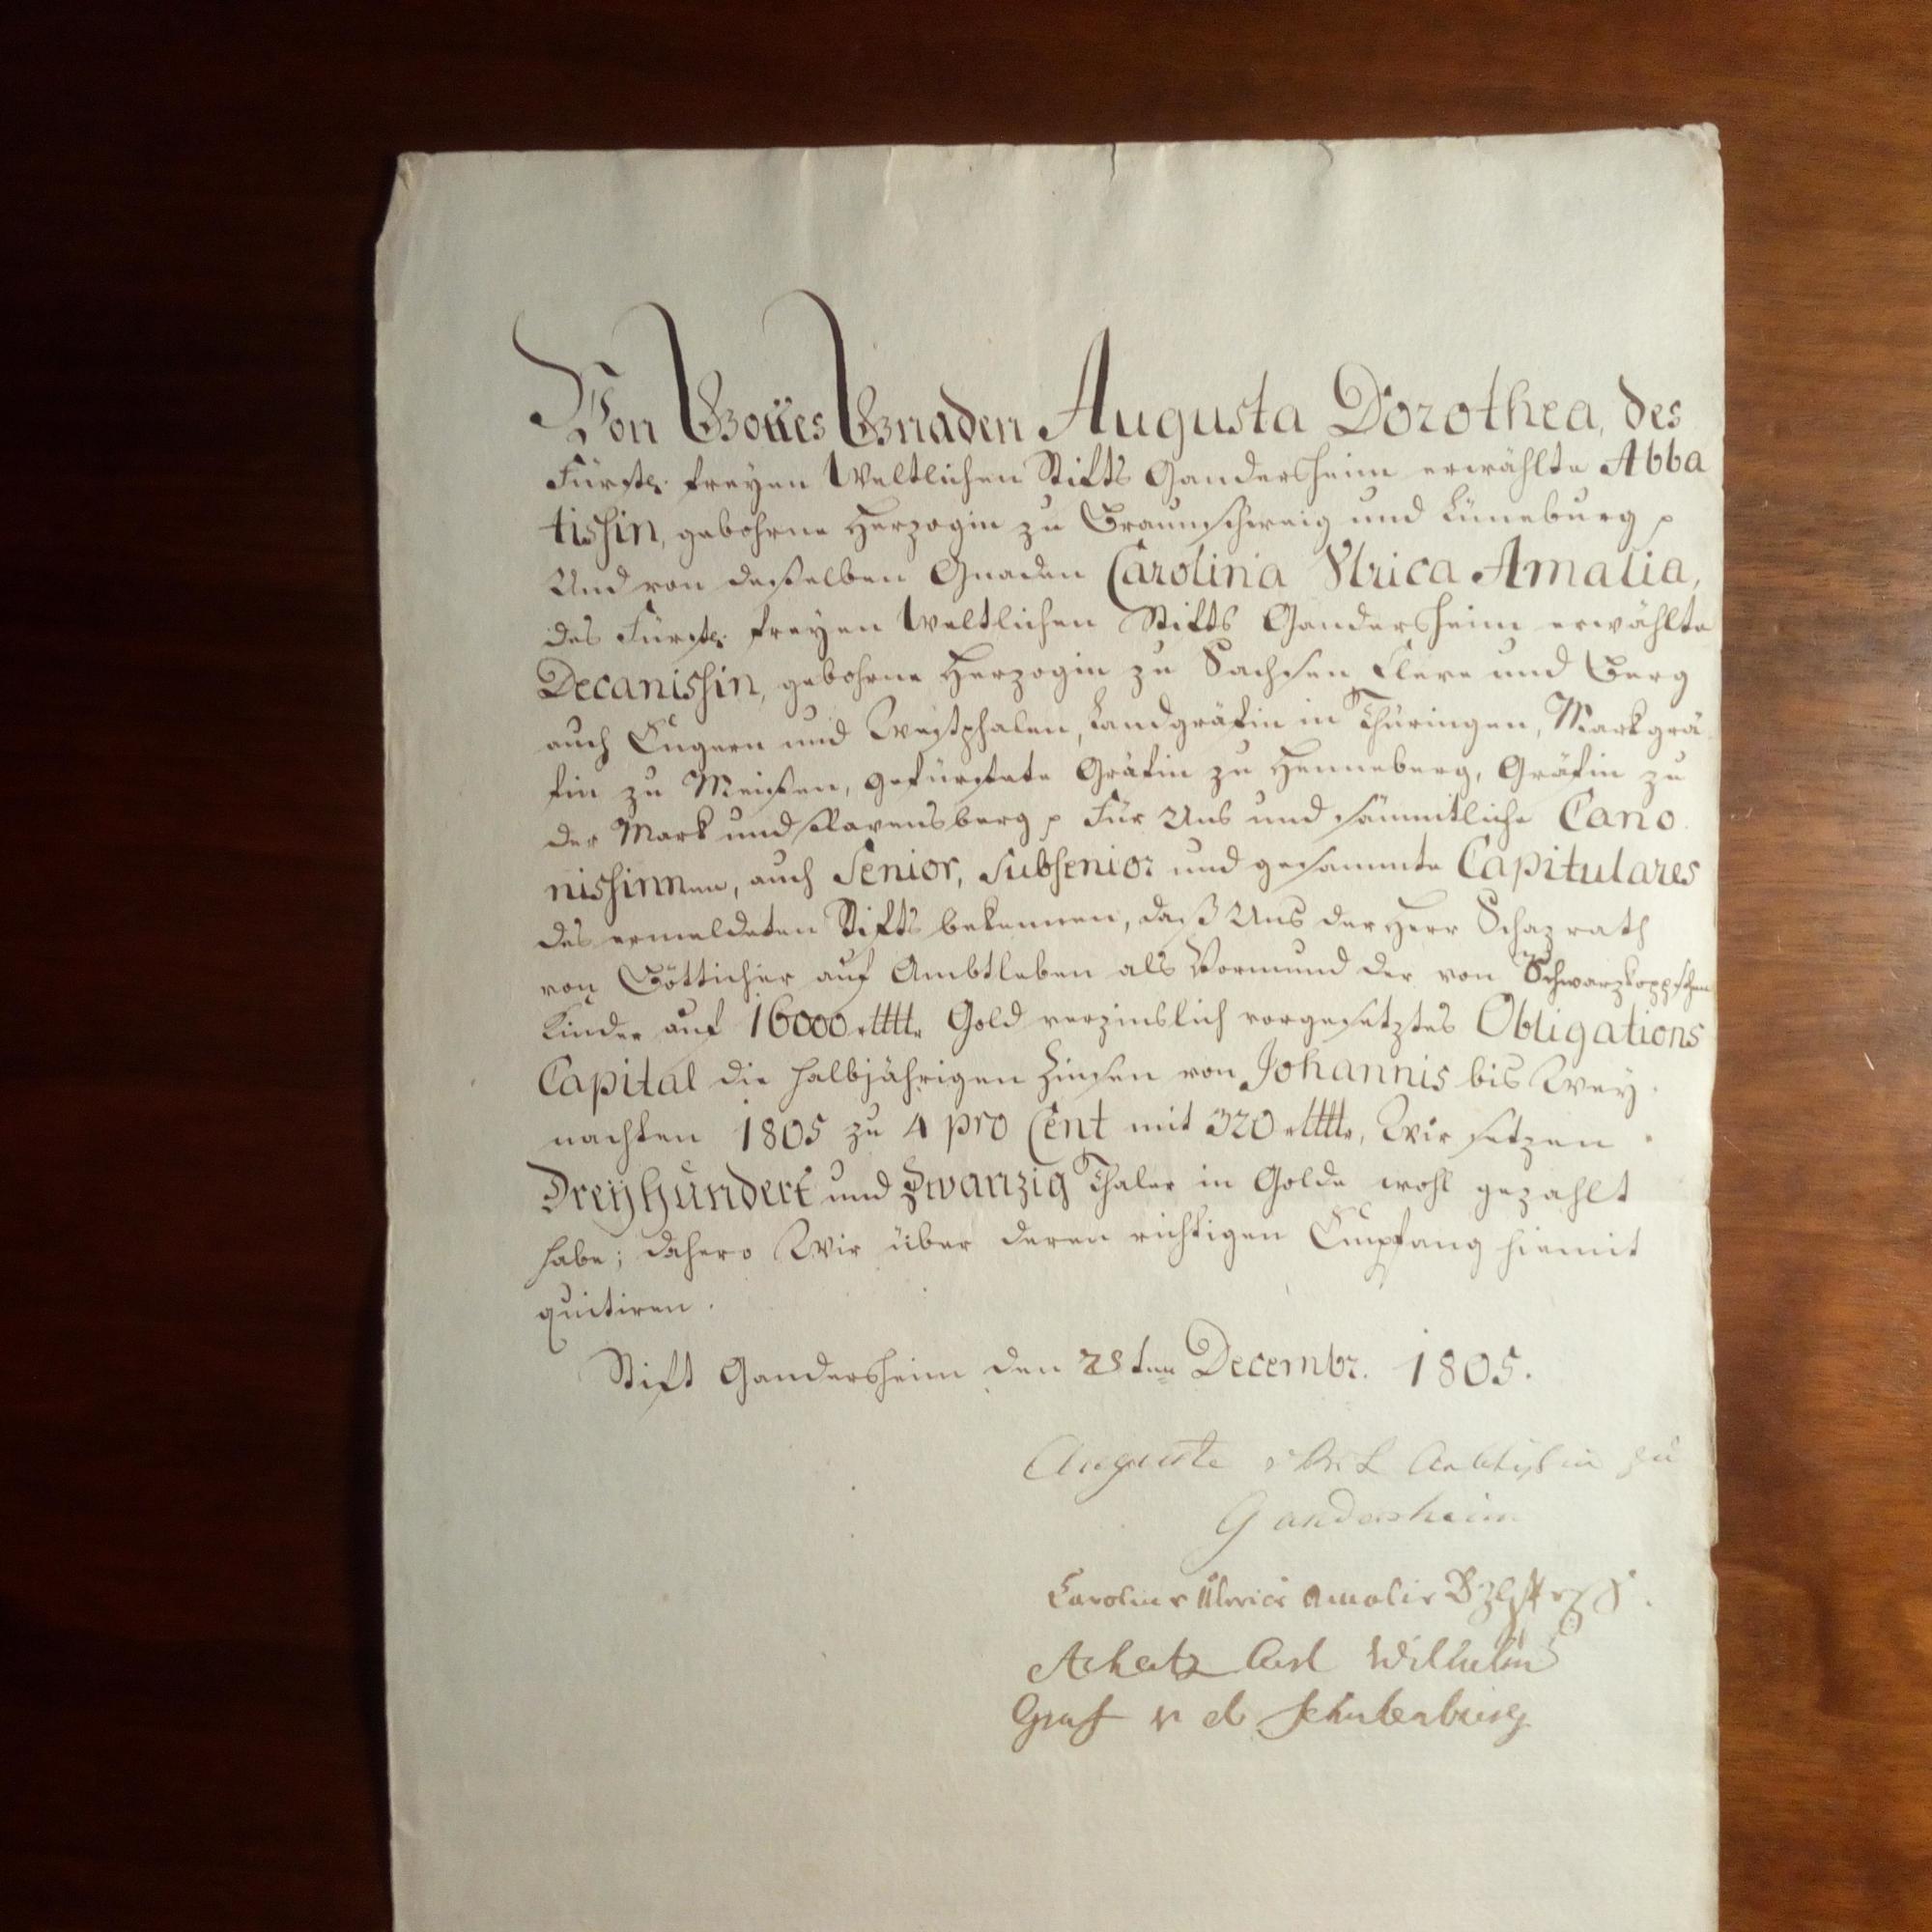 Von Gottes Gnaden Augusta Dorothea, des
Fürstl. freyen Weltlichen Stifts Gandersheim erwählte Abba
tissin, gebohrne Herzogin zu Braunschweig und Lüneburg p
Und von desselben Gnaden Carolina Ulrica Amalia,
des Fürstl. freyen Weltlichen Stifts Gandersheim erwählte
Decanissin, gebohrne Herzogin zu Sachsen Cleve und Berg
auch Engern und Westphalen, Landgräfin in Thüringen, Markgrä
fin zu Meißen, gefürstete Gräfin zu Henneberg, Gräfin zu
der Mark und Ravensberg p Für Uns und sämmtliche Cano
nissinnen, auch Senior, Subsenior und gesammte Capitulares
des ermeldeten Stifts bekennen, daß Uns der Herr Schazrath
von Bötticher auf Ambtleben als Vormund der von Schwarzkoppschen
Kinder auf 16000 rtttlr Gold verzinslich vorgesetztes Obligations
Capital die halbjährigen Zinsen von Johannis bis Wey
nachten 1805 zu 4 pro Cent mit 320 rtttlr, Wir setzen
Dreyhundert und Zwanzig Thaler in Golde wohl gezahlt
habe; dahero Wir über deren richtigen Empfang hiemit
quitiren.
Stift Gandersheim den 28ten Decembr. 1805.
Auguste Aebtißin zu
Gandersheim
Caroline Ulrice Amalie
Achatz Carl Wilhelm
Graf v d Schulenburg